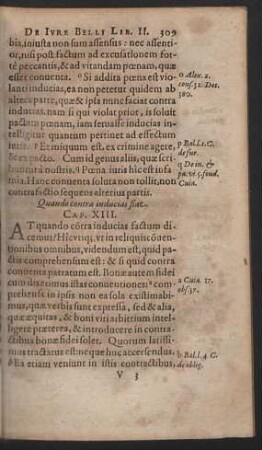 DE IVRE BELLI LIB. II. 309
bis, iniusta non sum assensus: nec assenti-
or, nisi post factum ad excusationem fortè
peccantis, & ad vitandam pœnam, quæ
esset conuenta. o Si addita pœna est viol-
anti inducias, ea non petetur quidem ab
altera parte, quæ & ipsa nunc faciat contra
inducias. nam si qui violat prior, is soluit
pactionem & pœnam, iam ferusasse inducias in-
telligitur quantum pertinet ad effectum
iuris. p Et nisi quum est, ex crimine agere,
& ex pacto. Cum id genus alias, quæ scri-
buntur à nostris. q Pœna iuris hîc est infa-
mia. Hanc conuenta soluta non tollit, non
contra factio sequens alterius partis.
o Alex. 2.
cons. 32. Dec.
380.
p Bal. l. 1. C.
de fur.
q De in. &
Cuia.
Quando contra inducias fiat.
CAP. XIII.
AT quando contra inducias factum di-
cemus? Hîc vtiq;, vt in reliquis côuen-
tionibus omnibus, videndum est, quid pa-
ctis comprehensum est: & si quid contra
conuenta patratum est. Bonæ autem fidei
cum dixerimus istas conuentiones: a com-
prehensa in ipsis non ea sola existimabi-
mus, quæ verbis sunt expressa, sed & alia,
quæ æquitas, & boni viri arbitrium intel-
ligere præterea, & introducere in contra-
ctibus bonæ fidei solet. Quorum latissi-
mus tractatus est: neque huc accersendus.
b Ea etiam veniunt in istis contractibus,
a Cuia. 17.
obs. 37.
b Bal. l. 4. C.
de oblig.
V 3